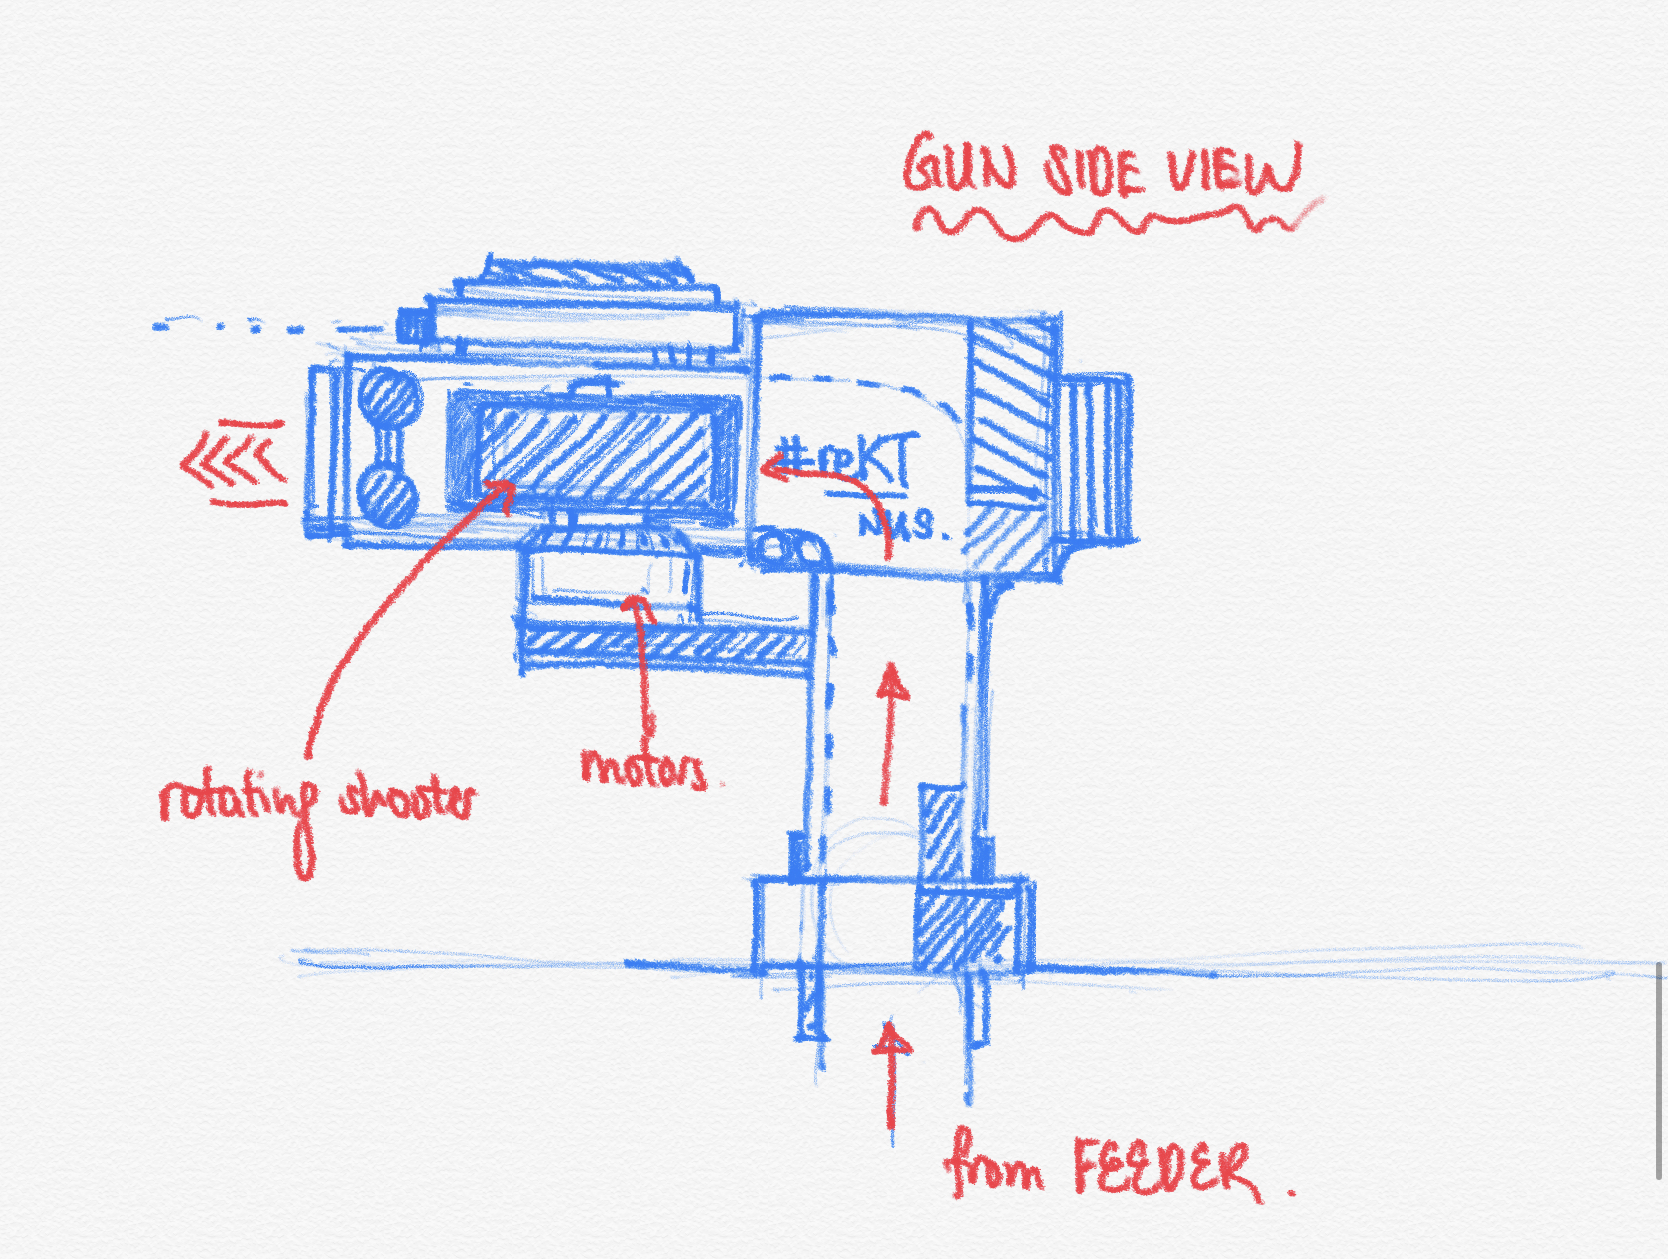 GUN SIDE VIEW
#rpKT
NUS.
rotating shooter
motors.
from FEEDER.